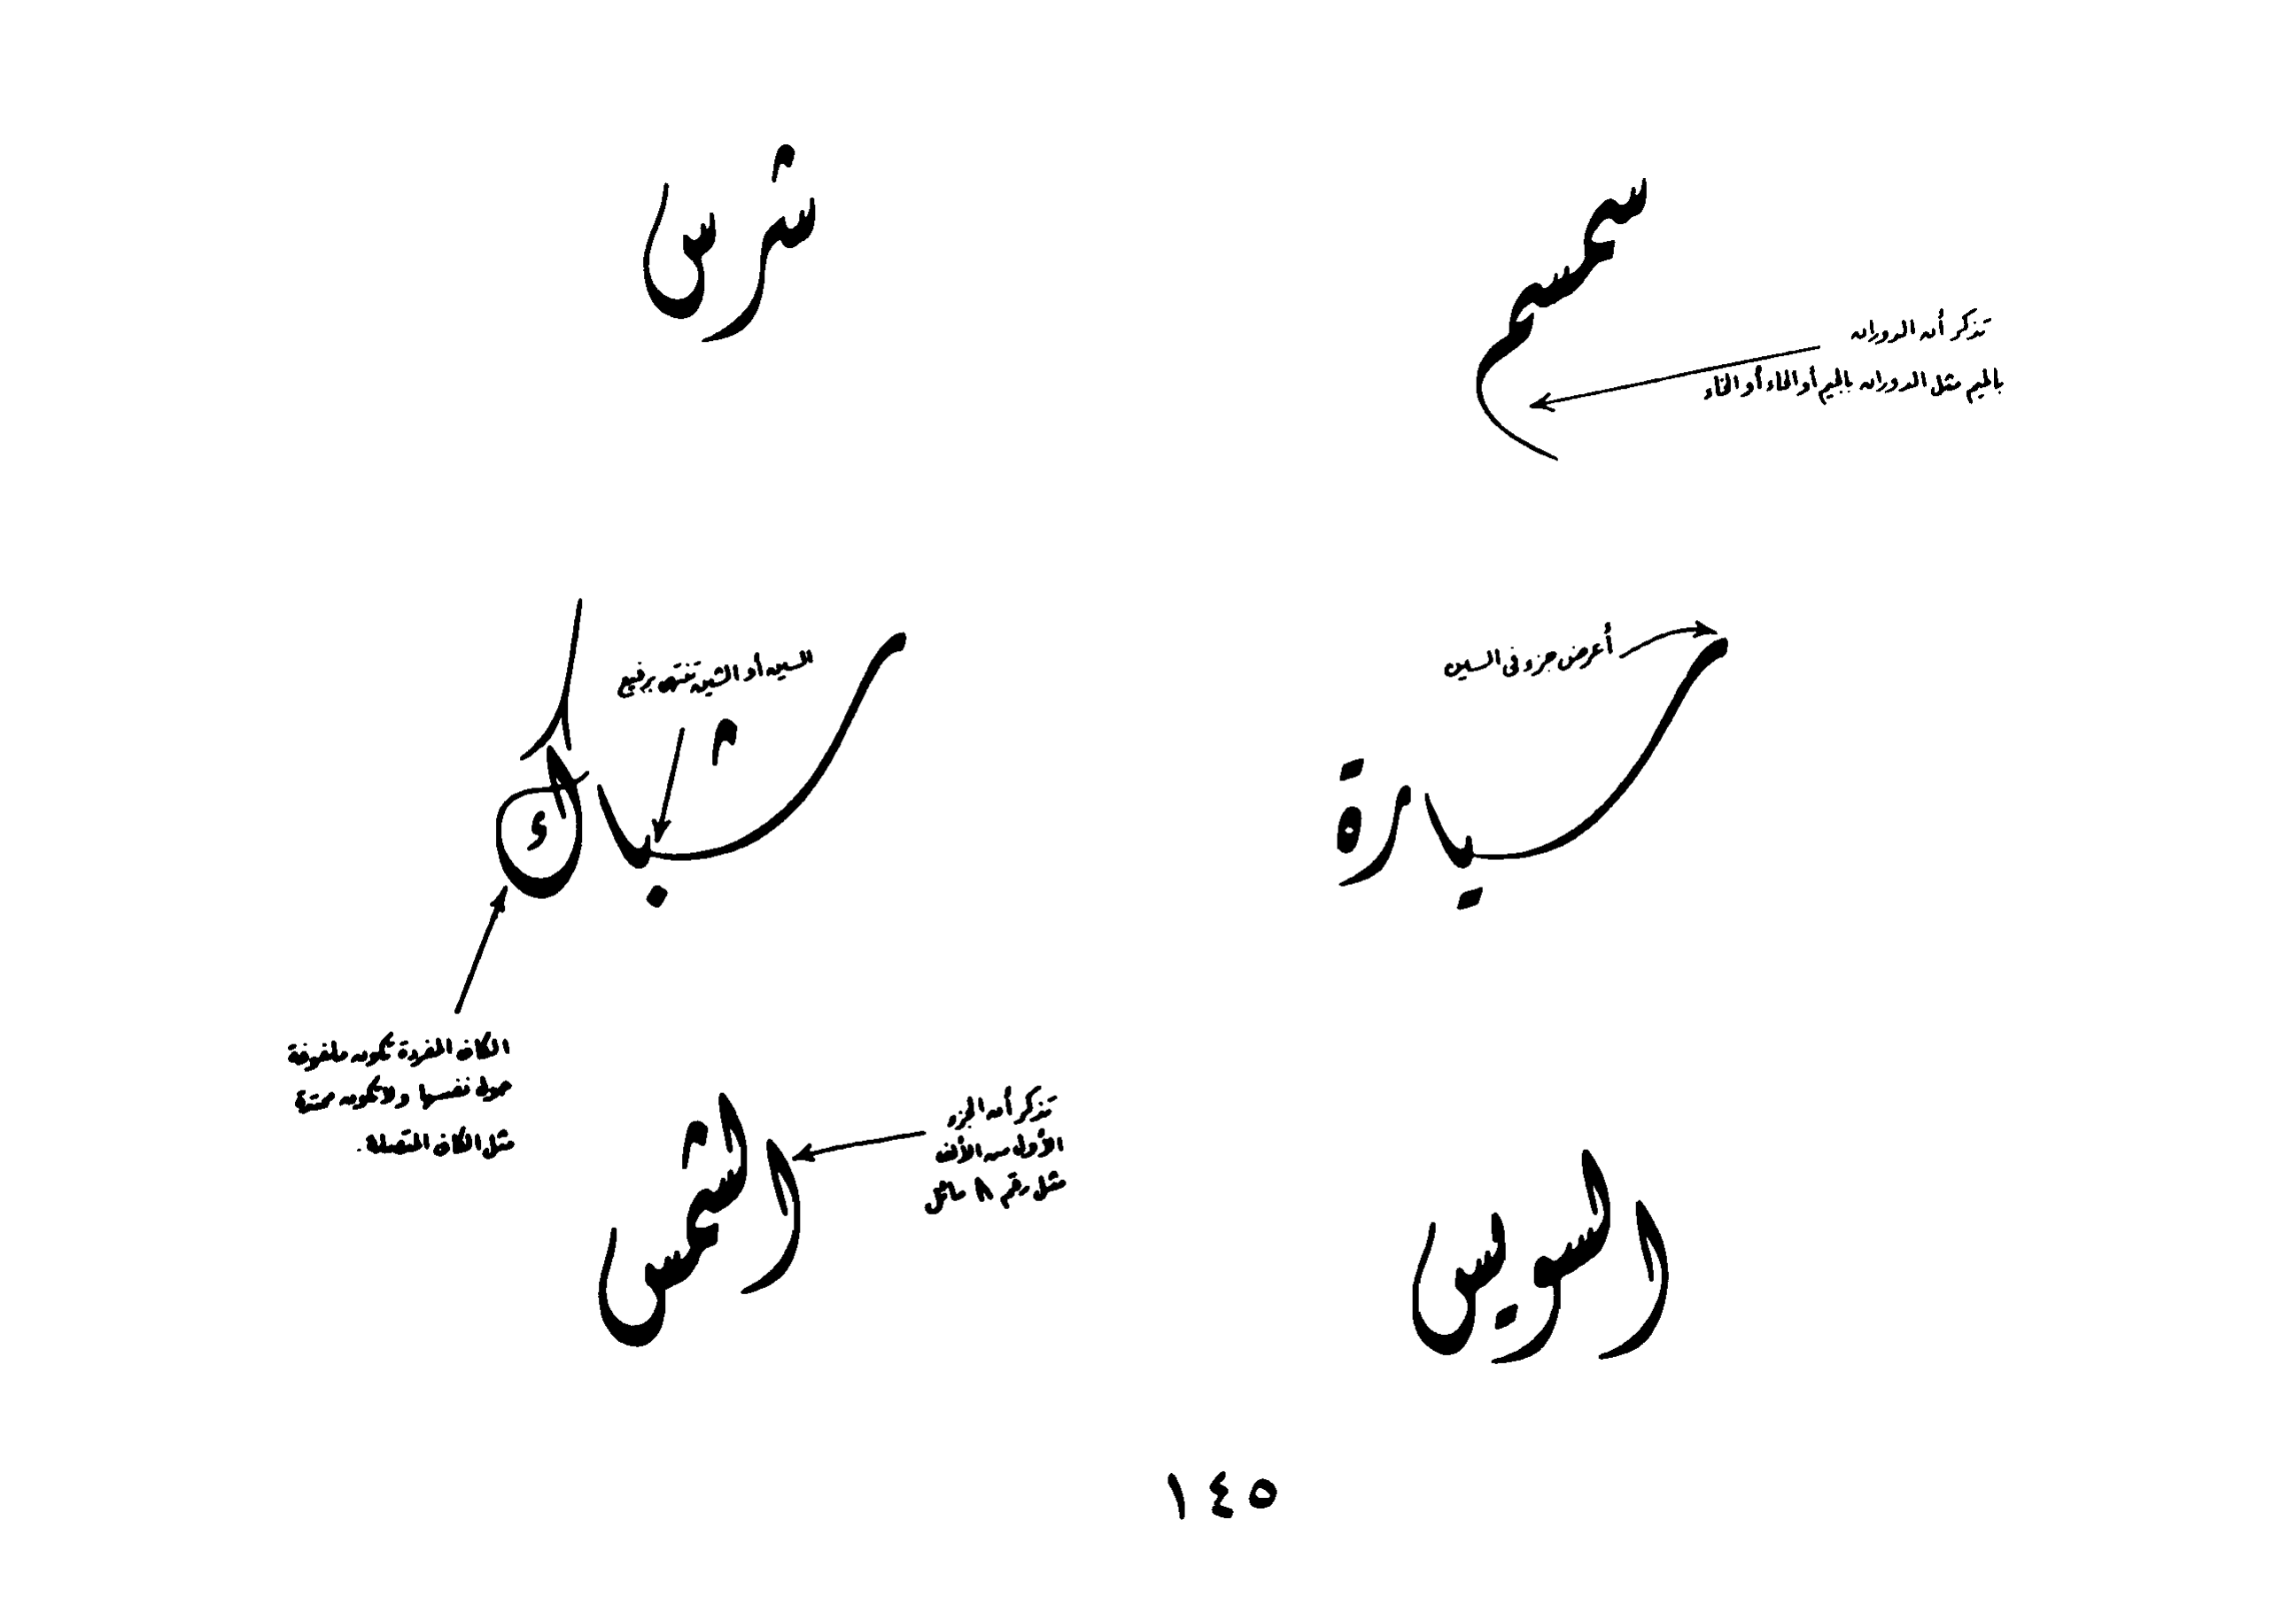 سمسم
شرس
تذكر أن الدوران
بالميم مثل الدوران بالجيم أو الحاء أو الخاء
سيارة
أعرض جزء فى السين
شباك
السين أو الشين تنتهى برفيع
الكاف المفردة تكون ملفوفة
حول نفسها ولا تكون ممتدة
مثل الكاف المتصلة.
السويس
الشمس
تذكر أن الجزء
الأول من الألف
مثل رقم ٨ مائل
١٤٥